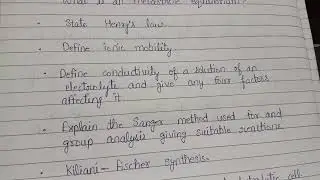 What is an
State Henry's law
• Define ionic mobility
• Define conductivity of a solution of an
electrolyte and give any four factors
affecting it
• Explain the Sanger method used for end
group analysis giving suitable reactions
• Kiliani - Fischer synthesis.
cell